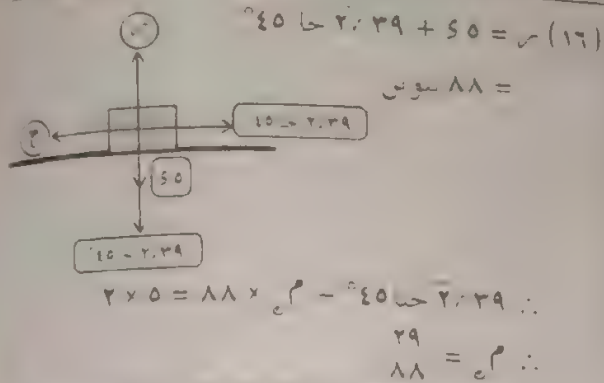 (١٦) ر = ٥ ء + ٣٩ √٢ حا ٤٥°
= ٨٨ نيوتن
ر
ح
٣٩ √٢ حتا ٤٥°
٥ ء
٣٩ √٢ حا ٤٥°
∴ ٣٩ √٢ حتا ٤٥° − م ك × ٨٨ = ٥ × ٢
∴ م ك = ٢٩/٨٨